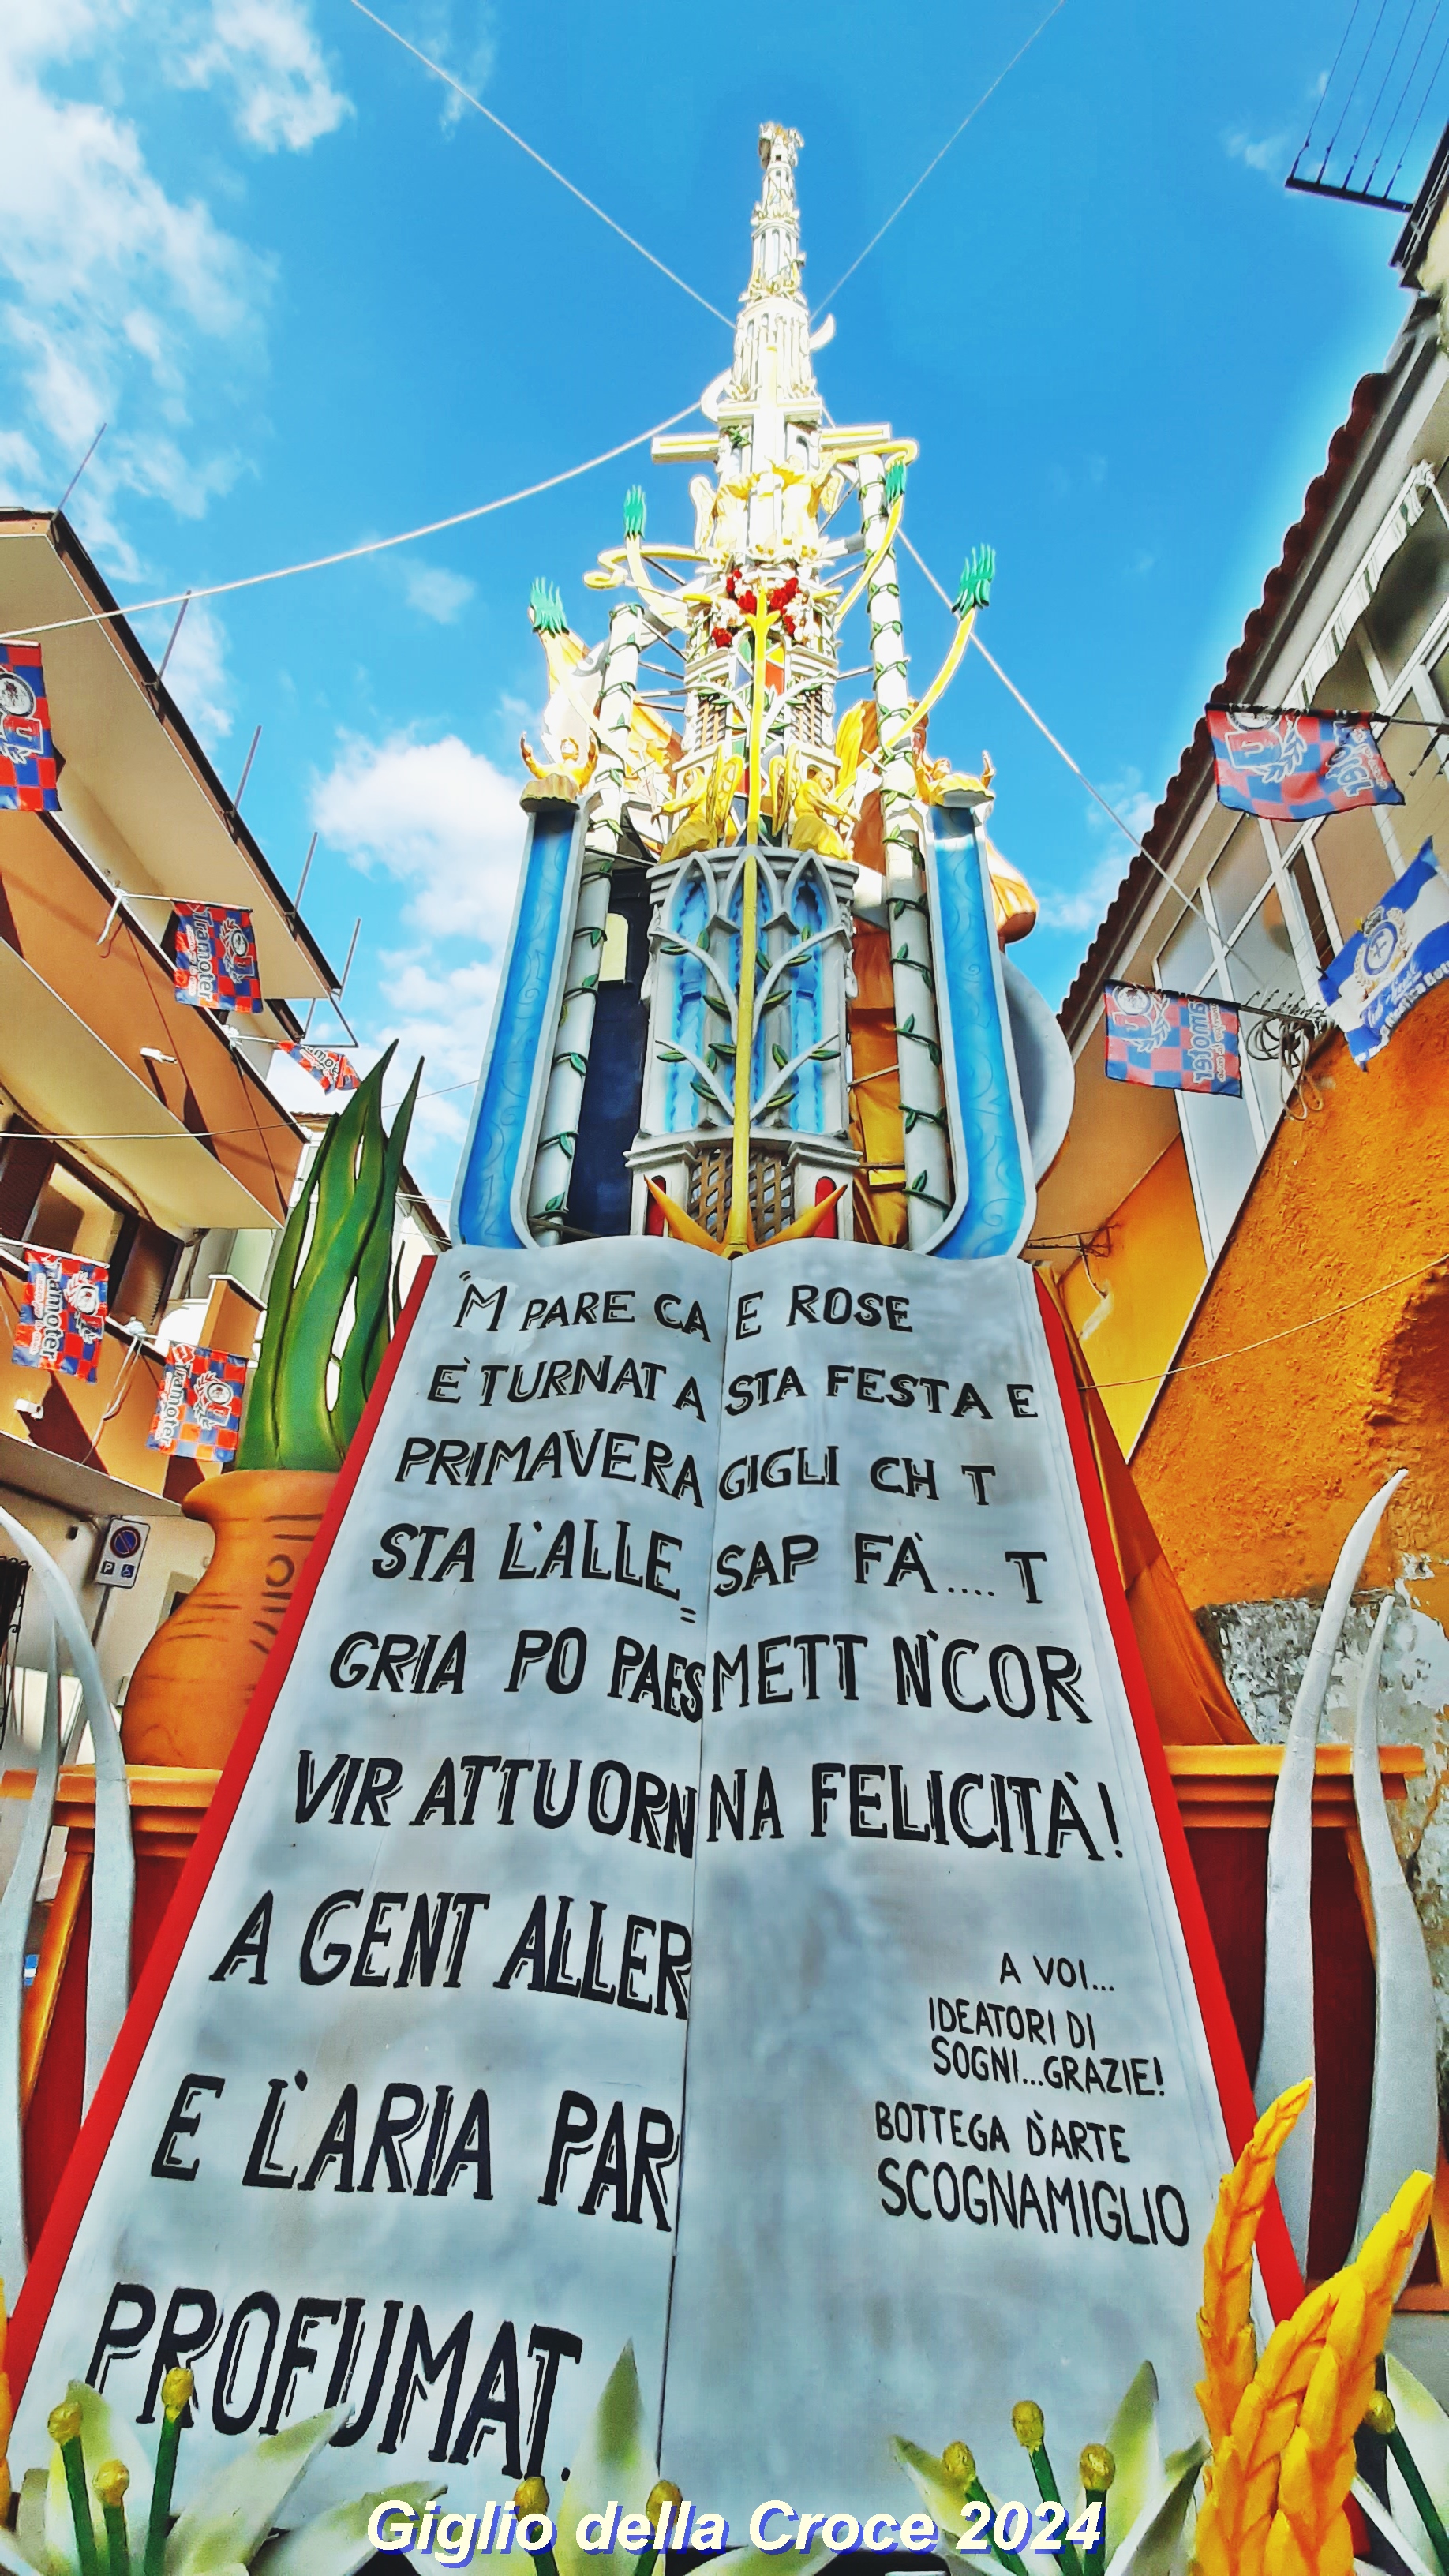 'M PARE CA
È TURNAT A
PRIMAVERA
STA L'ALLE=
GRIA PO PAES
VIR ATTUORN
A GENT ALLER
E L'ARIA PAR
PROFUMAT.
E ROSE
STA FESTA E
GIGLI CH T
SAP FÀ.... T
METT N'COR
NA FELICITÀ!
A VOI...
IDEATORI DI
SOGNI...GRAZIE!
BOTTEGA D'ARTE
SCOGNAMIGLIO
Tramoter
Tramoter
Tramoter
P
Giglio della Croce 2024